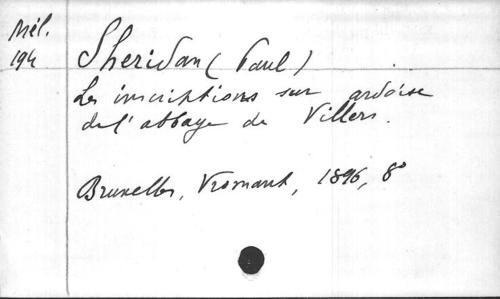 Mél.
194
Sheridan (Paul)
Les inscriptions sur ardoise
de l'abbaye de Villers.
Bruxelles, Vromant, 1896, 8°